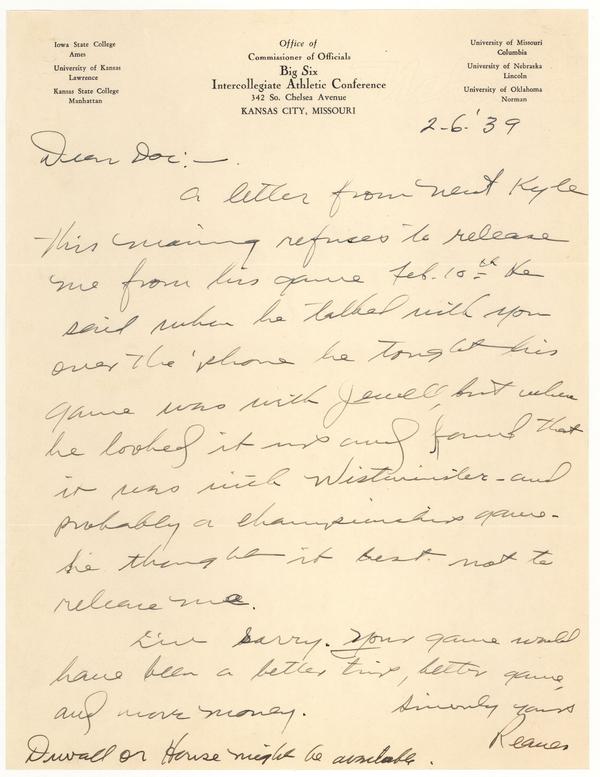 Iowa State College
Ames
University of Kansas
Lawrence
Kansas State College
Manhattan
Office of
Commissioner of Officials
Big Six
Intercollegiate Athletic Conference
342 So. Chelsea Avenue
KANSAS CITY, MISSOURI
University of Missouri
Columbia
University of Nebraska
Lincoln
University of Oklahoma
Norman
2-6-'39
Dear Doc:—
a letter from Kyle
this morning refuses to release
me from his game Feb. 10th He
said when he talked with you
over the 'phone he tought his
game was with Jewell, but when
he looked it up and found that
it was with Westminster - and
probably a championship game -
he thought it best not to
release me.
I'm sorry. Your game would
have been a better trip, better game,
and more money.
Sincerely yours
Reaves
Duvall or House might be available.